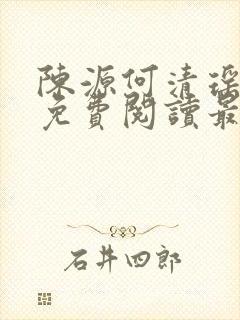 陳源何清瑤
免費閱讀最
石井四郎